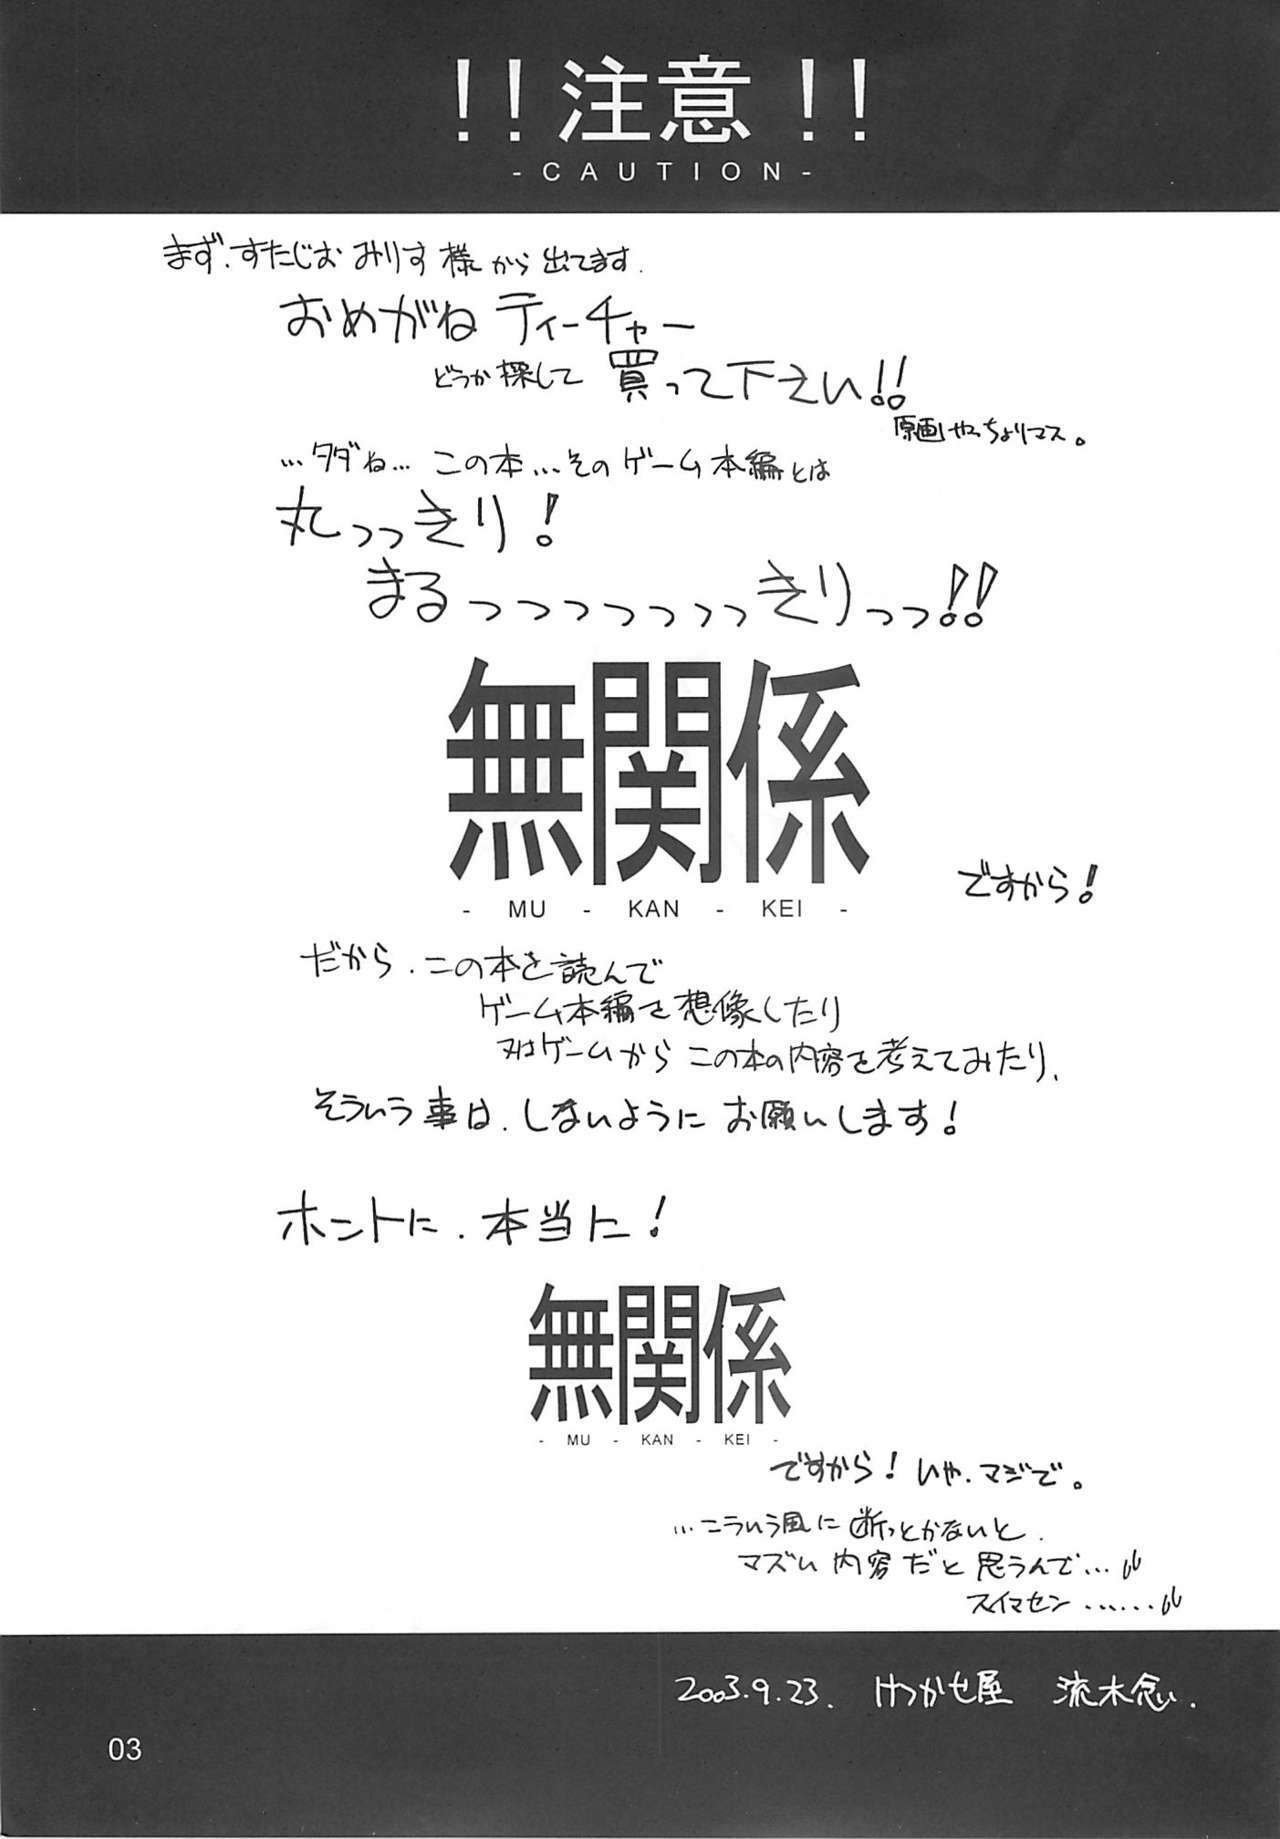 !!注意!!
-CAUTION-
まず、すたじおみりす様から出てます、
おめがねティーチャー
どうか探して買って下さい!!
原画やっちょりマス。
…タダね…この本…そのゲーム本編とは
丸っっきり!
まるっっっっっっっきりっっ!!
無関係
- MU - KAN - KEI -
ですから!
だから、この本を読んで
ゲーム本編を想像したり
又はゲームからこの本の内容を考えてみたり、
そういう事は、しないようにお願いします!
ホントに、本当に!
無関係
- MU - KAN - KEI -
ですから!いや、マジで。
…こういう風に断っとかないと、
マズい内容だと思うんで…
スイマセン……
2003.9.23. けつかせ屋 流木念い.
03